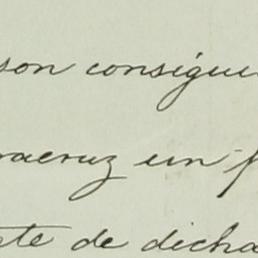 son consigue
racruz un
te de dicha